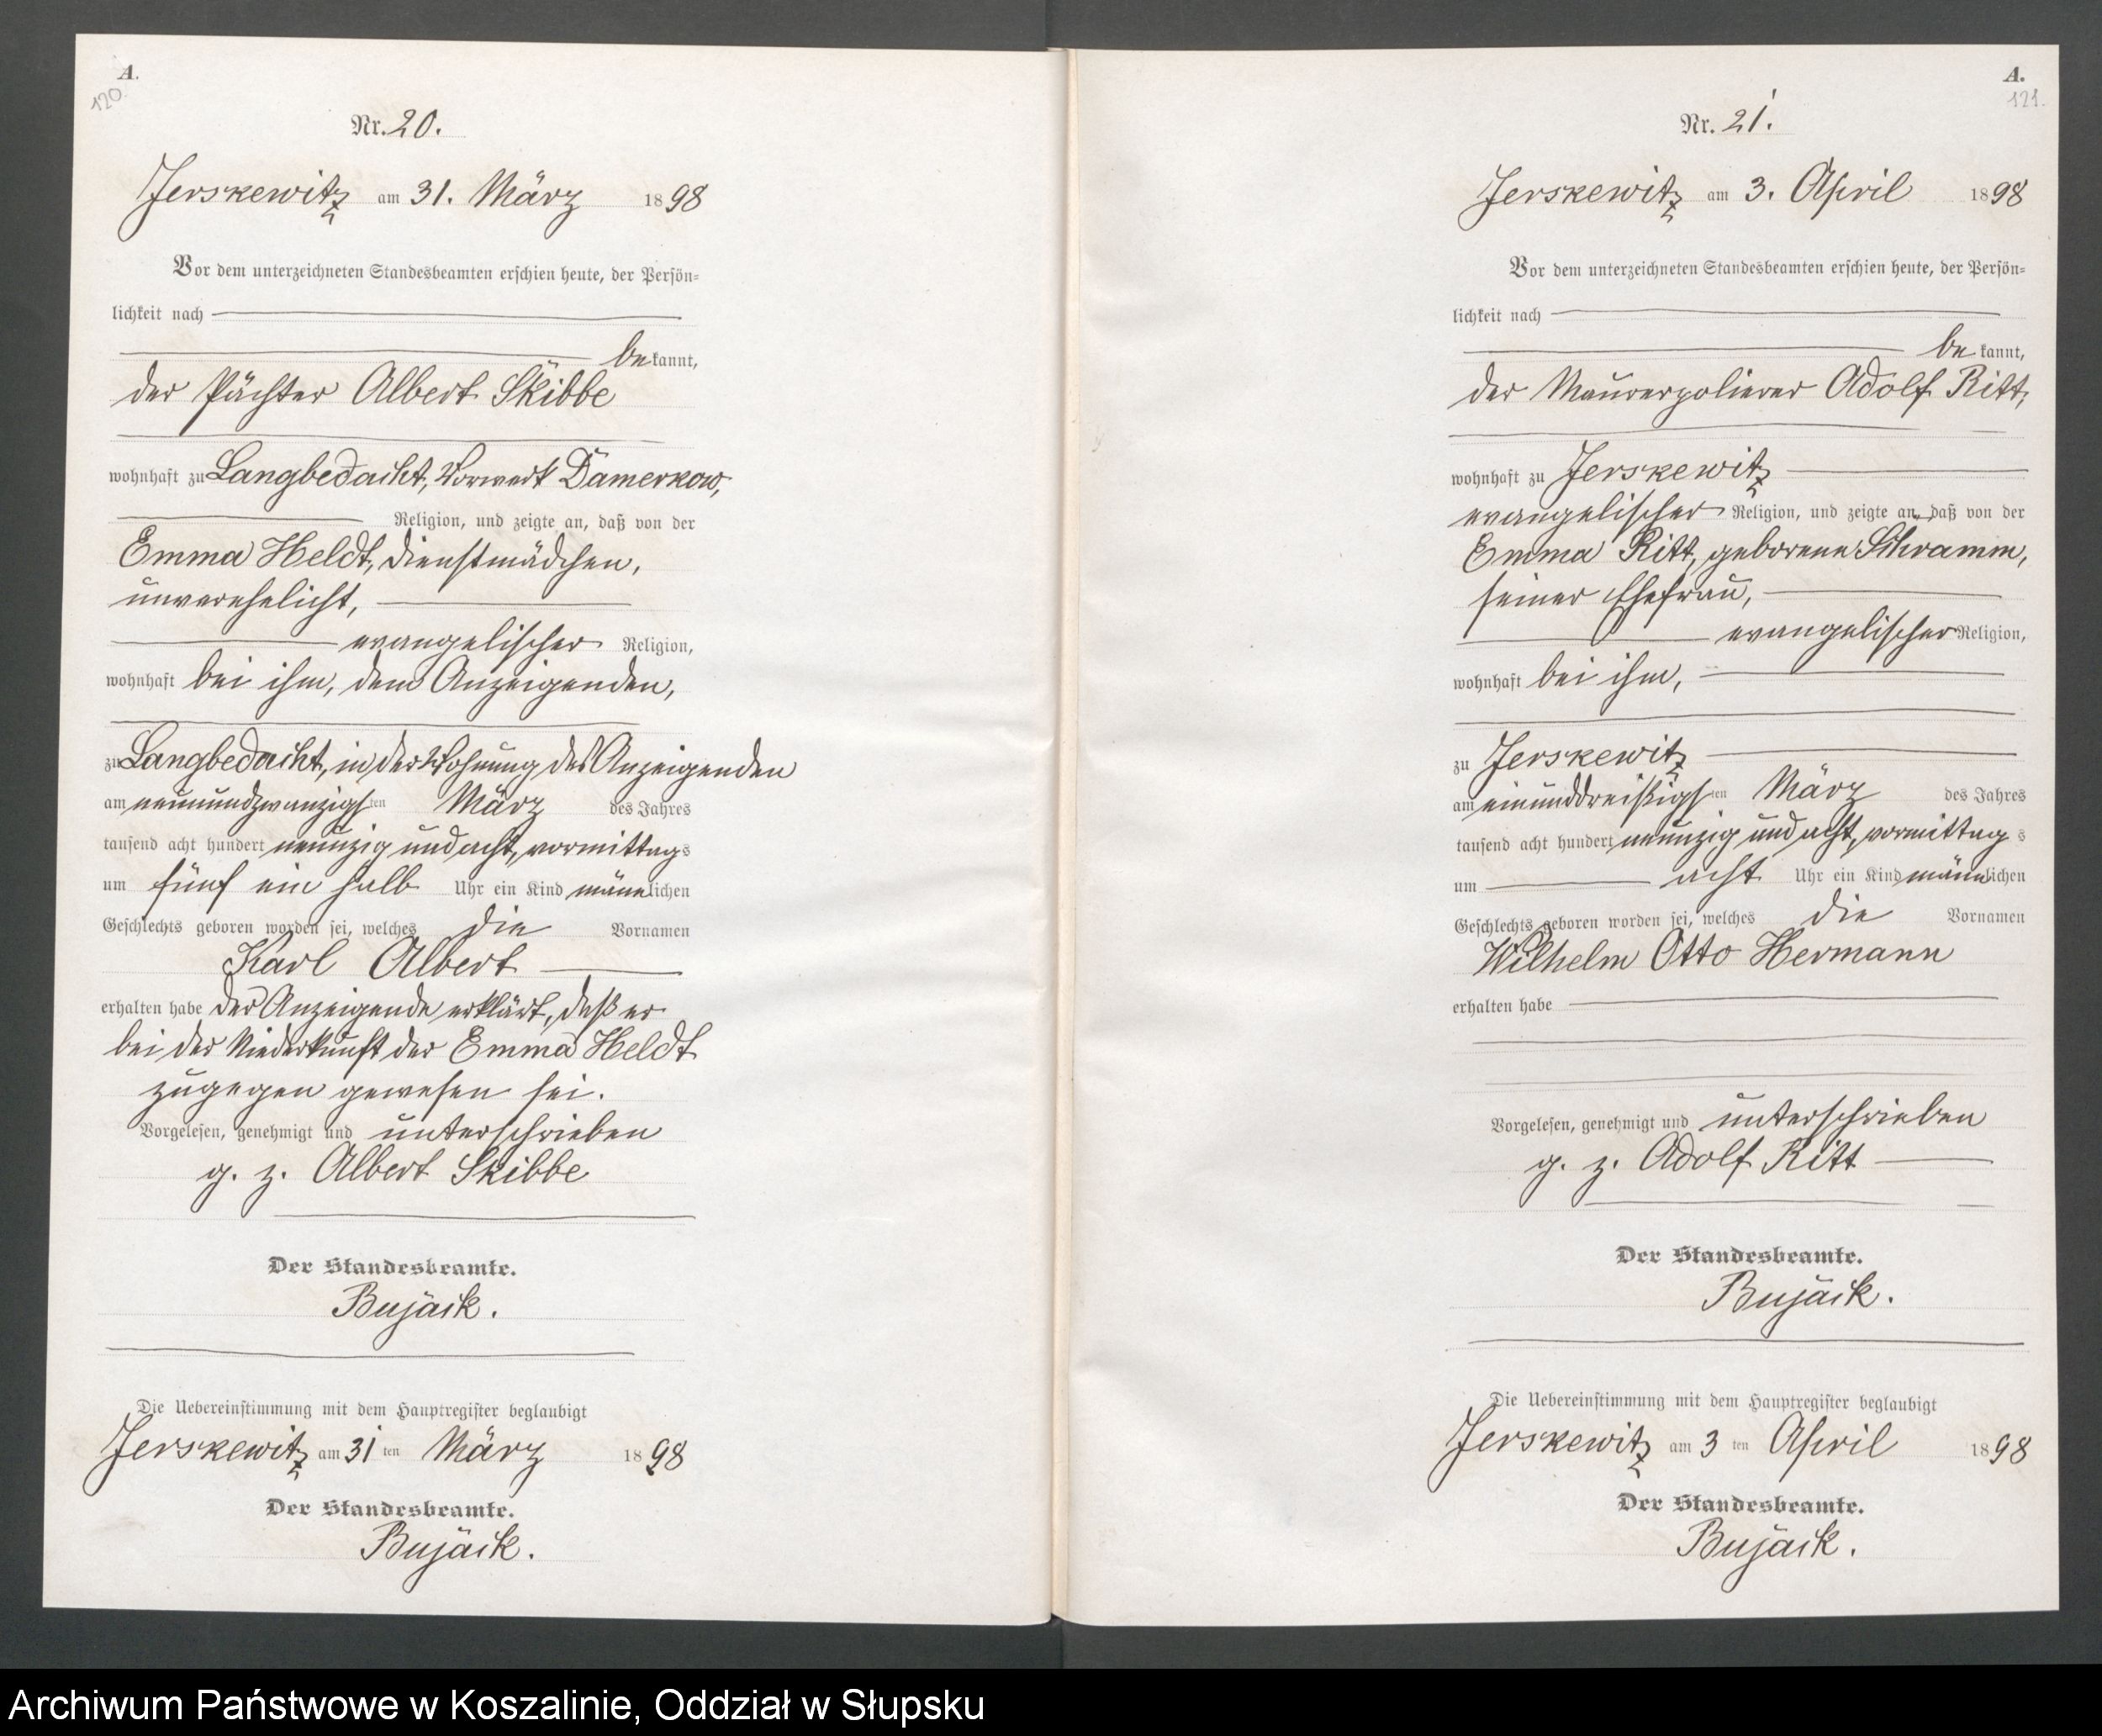 A.
120.
Nr. 20.
Jerskewitz am 31. März 1898
Vor dem unterzeichneten Standesbeamten erschien heute, der Persön-
lichkeit nach
bekannt,
der Pächter Albert Skibbe
wohnhaft zu Langbedacht, Vorwerk Damerkow,
Religion, und zeigte an, daß von der
Emma Heldt, Dienstmädchen,
unverehelicht,
evangelischer Religion,
wohnhaft bei ihm, dem Anzeigenden,
zu Langbedacht, in der Wohnung des Anzeigenden
am neunundzwanzigsten März des Jahres
tausend acht hundert neunzig und acht, vormittags
um fünf ein halb Uhr ein Kind männlichen
Geschlechts geboren worden sei, welches die Vornamen
Karl Albert
erhalten habe Der Anzeigende erklärt, daß er
bei der Niederkunft der Emma Heldt
zugegen gewesen sei.
Vorgelesen, genehmigt und unterschrieben
g. z. Albert Skibbe
Der Standesbeamte.
Bujack.
Die Uebereinstimmung mit dem Hauptregister beglaubigt
Jerskewitz am 31ten März 1898
Der Standesbeamte.
Bujack.
A.
121.
Nr. 21.
Jerskewitz am 3. April 1898
Vor dem unterzeichneten Standesbeamten erschien heute, der Persön-
lichkeit nach
bekannt,
der Maurerpolierer Adolf Ritt,
wohnhaft zu Jerskewitz
evangelischer Religion, und zeigte an, daß von der
Emma Ritt, geborene Schramm,
seiner Ehefrau,
evangelischer Religion,
wohnhaft bei ihm,
zu Jerskewitz
am einunddreißigsten März des Jahres
tausend acht hundert neunzig und acht, vormittags
um acht Uhr ein Kind männlichen
Geschlechts geboren worden sei, welches die Vornamen
Wilhelm Otto Hermann
erhalten habe
Vorgelesen, genehmigt und unterschrieben
g. z. Adolf Ritt
Der Standesbeamte.
Bujack.
Die Uebereinstimmung mit dem Hauptregister beglaubigt
Jerskewitz am 3ten April 1898
Der Standesbeamte.
Bujack.
Archiwum Państwowe w Koszalinie, Oddział w Słupsku